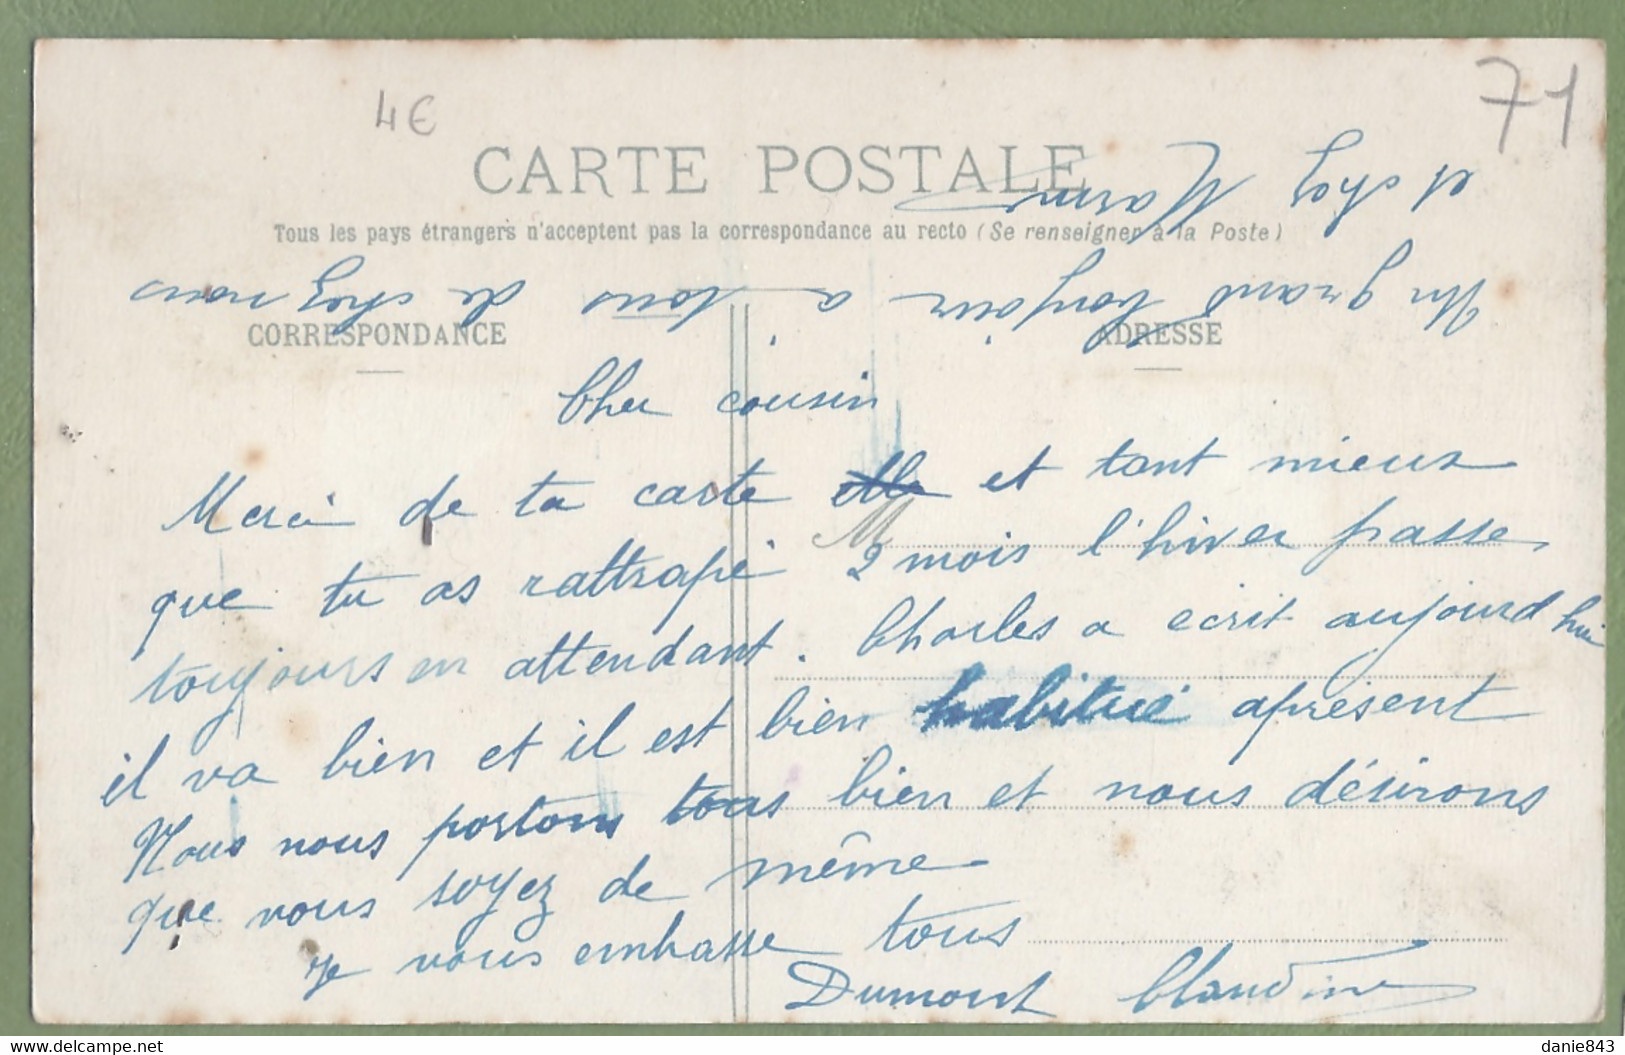 4€
71
CARTE POSTALE
Tous les pays étrangers n'acceptent pas la correspondance au recto (Se renseigner à la Poste)
CORRESPONDANCE
ADRESSE
Cher cousin
Merci de ta carte et tant mieux
que tu as rattrapé 2 mois l'hiver passe
toujours en attendant. Charles a ecrit aujourd hui
il va bien et il est bien habitué apresent
Nous nous portons tous bien et nous désirons
que vous soyez de même
Je vous embrasse tous
Dumont Claudine
Un grand bonjour a tous de chez nous
et chez
M
danie843